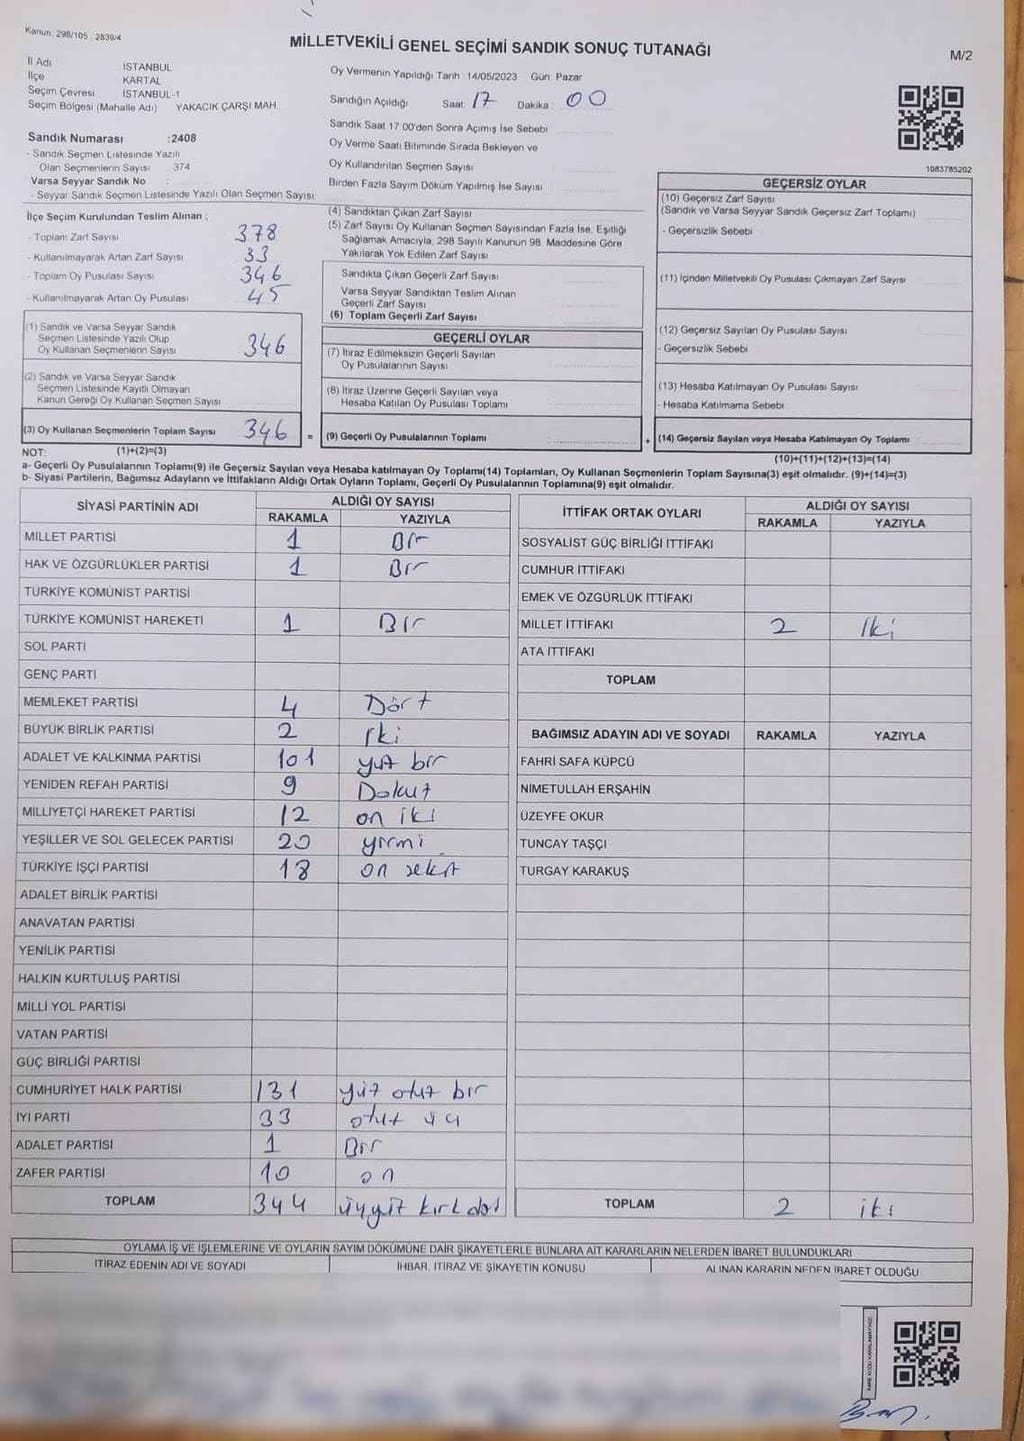 Kanun: 298/105 ; 2839/4
MİLLETVEKİLİ GENEL SEÇİMİ SANDIK SONUÇ TUTANAĞI
M/2
İl Adı İSTANBUL
İlçe KARTAL
Seçim Çevresi İSTANBUL-1
Seçim Bölgesi (Mahalle Adı) YAKACIK ÇARŞI MAH.
Sandık Numarası :2408
- Sandık Seçmen Listesinde Yazılı
Olan Seçmenlerin Sayısı 374
Varsa Seyyar Sandık No
- Seyyar Sandık Seçmen Listesinde Yazılı Olan Seçmen Sayısı
Oy Vermenin Yapıldığı Tarih 14/05/2023 Gün: Pazar
Sandığın Açıldığı Saat: 17 Dakika: 00
Sandık Saat 17:00'den Sonra Açımış İse Sebebi
Oy Verme Saati Bitiminde Sırada Bekleyen ve
Oy Kullandırılan Seçmen Sayısı
Birden Fazla Sayım Döküm Yapılmış İse Sayısı
1083785202
İlçe Seçim Kurulundan Teslim Alınan ;
- Toplam Zarf Sayısı 378
- Kullanılmayarak Artan Zarf Sayısı 33
- Toplam Oy Pusulası Sayısı 346
- Kullanılmayarak Artan Oy Pusulası 45
(1) Sandık ve Varsa Seyyar Sandık
Seçmen Listesinde Yazılı Olup
Oy Kullanan Seçmenlerin Sayısı 346
(2) Sandık ve Varsa Seyyar Sandık
Seçmen Listesinde Kayıtlı Olmayan
Kanun Gereği Oy Kullanan Seçmen Sayısı
(3) Oy Kullanan Seçmenlerin Toplam Sayısı 346 =
(1)+(2)=(3)
(4) Sandıktan Çıkan Zarf Sayısı
(5) Zarf Sayısı Oy Kullanan Seçmen Sayısından Fazla İse, Eşitliği
Sağlamak Amacıyla, 298 Sayılı Kanunun 98. Maddesine Göre
Yakılarak Yok Edilen Zarf Sayısı
Sandıkta Çıkan Geçerli Zarf Sayısı
Varsa Seyyar Sandıktan Teslim Alınan
Geçerli Zarf Sayısı
(6) Toplam Geçerli Zarf Sayısı
GEÇERLİ OYLAR
(7) İtiraz Edilmeksizin Geçerli Sayılan
Oy Pusulalarının Sayısı
(8) İtiraz Üzerine Geçerli Sayılan veya
Hesaba Katılan Oy Pusulası Toplamı
(9) Geçerli Oy Pusulalarının Toplamı +
GEÇERSİZ OYLAR
(10) Geçersiz Zarf Sayısı
(Sandık ve Varsa Seyyar Sandık Geçersiz Zarf Toplamı)
- Geçersizlik Sebebi
(11) İçinden Milletvekili Oy Pusulası Çıkmayan Zarf Sayısı
(12) Geçersiz Sayılan Oy Pusulası Sayısı
- Geçersizlik Sebebi
(13) Hesaba Katılmayan Oy Pusulası Sayısı
- Hesaba Katılmama Sebebi
(14) Geçersiz Sayılan veya Hesaba Katılmayan Oy Toplamı
(10)+(11)+(12)+(13)=(14)
NOT:
a- Geçerli Oy Pusulalarının Toplamı(9) ile Geçersiz Sayılan veya Hesaba katılmayan Oy Toplamı(14) Toplamları, Oy Kullanan Seçmenlerin Toplam Sayısına(3) eşit olmalıdır. (9)+(14)=(3)
b- Siyasi Partilerin, Bağımsız Adayların ve İttifakların Aldığı Ortak Oyların Toplamı, Geçerli Oy Pusulalarının Toplamına(9) eşit olmalıdır.
SİYASİ PARTİNİN ADI ALDIĞI OY SAYISI
RAKAMLA YAZIYLA
MİLLET PARTİSİ 1 Bir
HAK VE ÖZGÜRLÜKLER PARTİSİ 1 Bir
TÜRKİYE KOMÜNİST PARTİSİ
TÜRKİYE KOMÜNİST HAREKETİ 1 Bir
SOL PARTİ
GENÇ PARTİ
MEMLEKET PARTİSİ 4 Dört
BÜYÜK BİRLİK PARTİSİ 2 İki
ADALET VE KALKINMA PARTİSİ 101 yüz bir
YENİDEN REFAH PARTİSİ 9 Dokuz
MİLLİYETÇİ HAREKET PARTİSİ 12 on iki
YEŞİLLER VE SOL GELECEK PARTİSİ 20 yirmi
TÜRKİYE İŞÇİ PARTİSİ 18 on sekiz
ADALET BİRLİK PARTİSİ
ANAVATAN PARTİSİ
YENİLİK PARTİSİ
HALKIN KURTULUŞ PARTİSİ
MİLLİ YOL PARTİSİ
VATAN PARTİSİ
GÜÇ BİRLİĞİ PARTİSİ
CUMHURİYET HALK PARTİSİ 131 yüz otuz bir
İYİ PARTİ 33 otuz üç
ADALET PARTİSİ 1 Bir
ZAFER PARTİSİ 10 on
TOPLAM 344 üçyüz kırk dört
İTTİFAK ORTAK OYLARI ALDIĞI OY SAYISI
RAKAMLA YAZIYLA
SOSYALİST GÜÇ BİRLİĞİ İTTİFAKI
CUMHUR İTTİFAKI
EMEK VE ÖZGÜRLÜK İTTİFAKI
MİLLET İTTİFAKI 2 İki
ATA İTTİFAKI
TOPLAM
BAĞIMSIZ ADAYIN ADI VE SOYADI RAKAMLA YAZIYLA
FAHRİ SAFA KÜPCÜ
NİMETULLAH ERŞAHİN
ÜZEYFE OKUR
TUNCAY TAŞÇI
TURGAY KARAKUŞ
TOPLAM 2 iki
OYLAMA İŞ VE İŞLEMLERİNE VE OYLARIN SAYIM DÖKÜMÜNE DAİR ŞİKAYETLERLE BUNLARA AİT KARARLARIN NELERDEN İBARET BULUNDUKLARI
İTİRAZ EDENİN ADI VE SOYADI İHBAR, İTİRAZ VE ŞİKAYETİN KONUSU ALINAN KARARIN NEDEN İBARET OLDUĞU